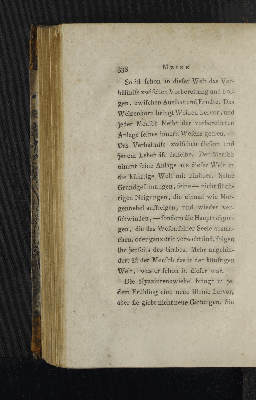 338 MEINE
So ist schon in dieser Welt das Ver-
hältniß zwischen Vorbereitung und Fol-
gen, zwischen Aussaat und Erndte. Das
Weizenkorn bringt Weizen hervor, und
jeder Mensch bleibt der vorbereiteten
Anlage seines innern Wesens getreu. —
Das Verhältniß zwischen diesem und
jenem Leben ist dasselbe. Der Mensch
nimmt seine Anlage aus dieser Welt in
die künftige Welt mit hinüber. Seine
Grundgesinnungen, seine — nicht flüch-
tigen Neigungen, die einmal wie Mor-
gennebel aufsteigen, und wieder ver-
schwinden, — sondern die Hauptneigun-
gen, die das Wesen seiner Seele ausma-
chen, oder ganz mit verwebt sind, folgen
ihr jenseits des Grabes. Mehr ungehin-
dert ist der Mensch das in der künftigen
Welt, was er schon in dieser war.
— Die Hyazintenzwiebel bringt in je-
dem Frühling eine neue Blume hervor,
aber sie giebt nicht neue Gattungen. Sie